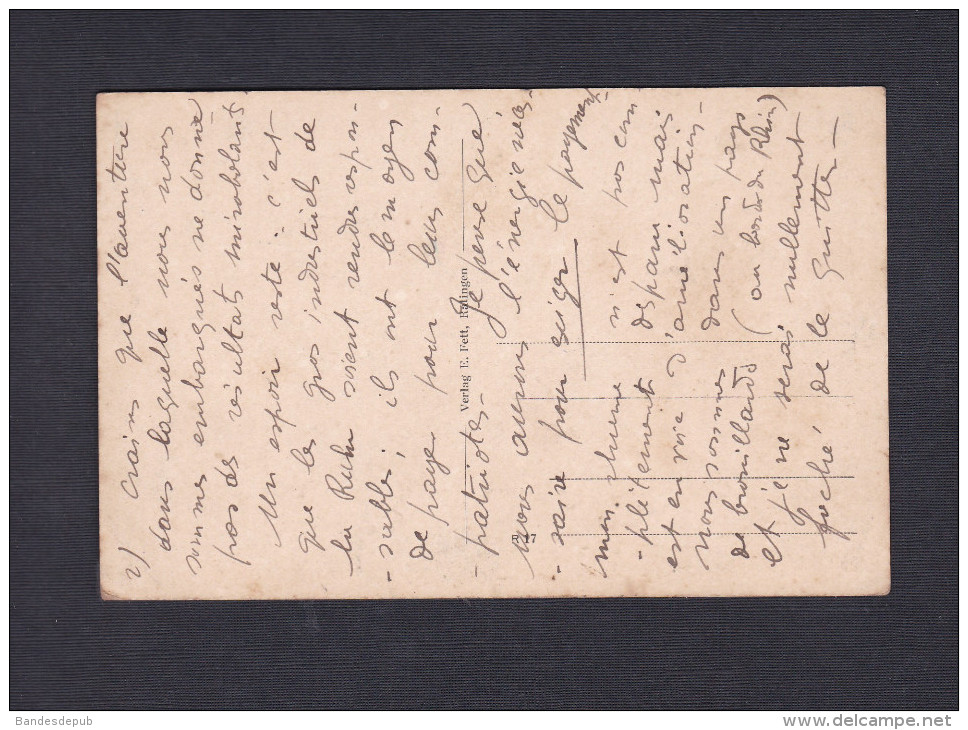 2) crains que l'aventure
dans laquelle nous nous
sommes embarqués ne donne
pas des résultats mirobolants
Un espoir reste : c'est
que les gros industriels de
la Ruhr soient rendus respon-
-sables ; ils ont le moyen
de payer pour leurs com-
-patriotes - Je pense que
nous aurons l'énergie néces-
-saire pour exiger le payement
mon rhume n'est pas com-
-plètement disparu mais
est en voie d'amélioration -
nous sommes dans un pays
de brouillards (au bord du Rhin)
et je ne serai nullement
fâché de le quitter -
Verlag E. Fett, Ratingen
Bandesdepub
www.delcampe.net